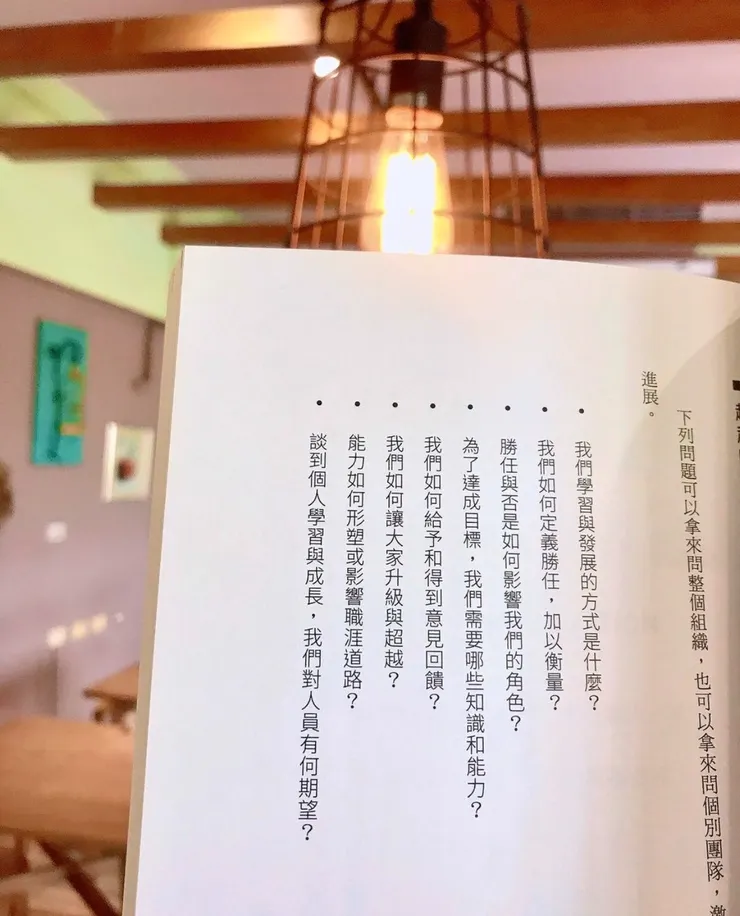 下列問題可以拿來問整個組織，也可以拿來問個別團隊，激
進展。
• 我們學習與發展的方式是什麼？
• 我們如何定義勝任，加以衡量？
• 勝任與否是如何影響我們的角色？
• 為了達成目標，我們需要哪些知識和能力？
• 我們如何給予和得到意見回饋？
• 我們如何讓大家升級與超越？
• 能力如何形塑或影響職涯道路？
• 談到個人學習與成長，我們對人員有何期望？